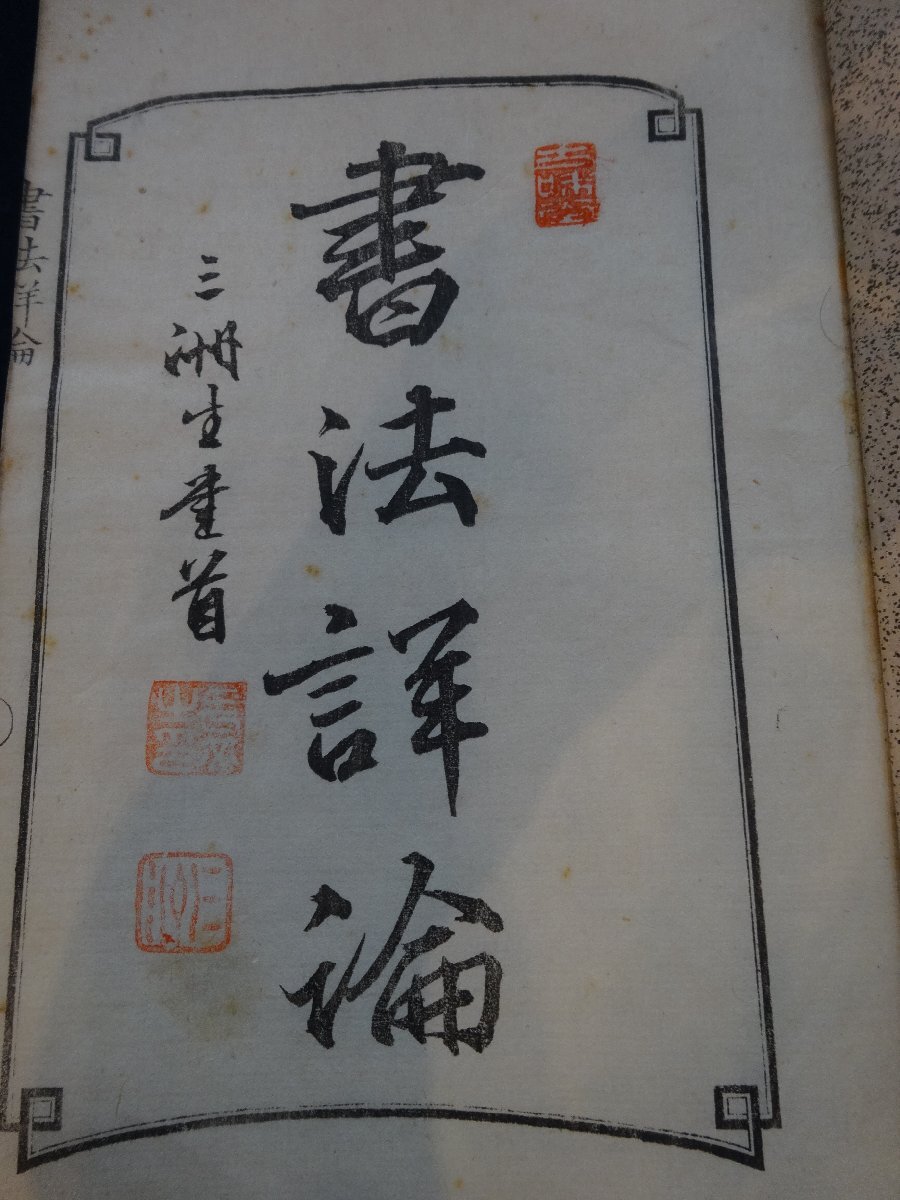 書法詳論
三洲生書首
書法詳論